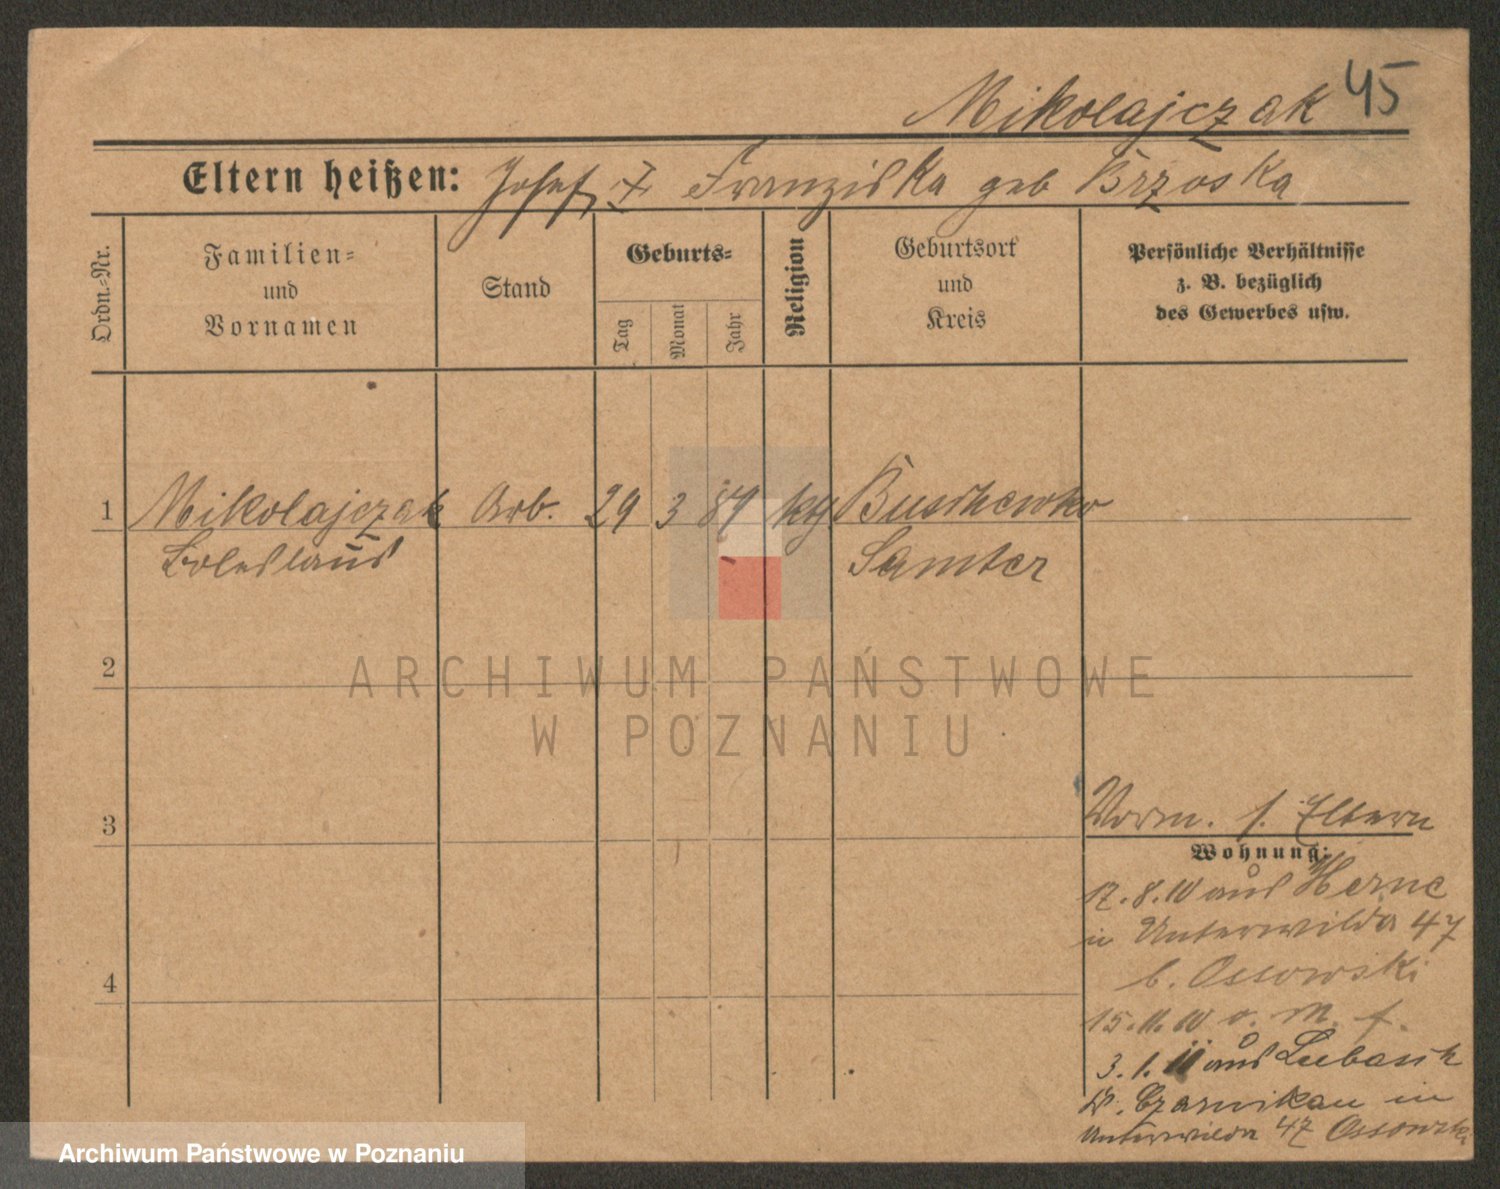 Mikolajczak 45
Eltern heißen: Josef, Franziska geb Brzoska
Ordn.-Nr.
Familien-
und
Vornamen
Stand
Geburts-
Tag
Monat
Jahr
Religion
Geburtsort
und
Kreis
Persönliche Verhältnisse
z. B. bezüglich
des Gewerbes usw.
1 Mikolajczak Arb. 29 3 89 Buschewko
Boleslaus Samter
2
ARCHIWUM PAŃSTWOWE
W POZNANIU
3
Vorm. s. Eltern
Wohnung:
17.8.10 aus Herne
in Unterwilda 47
b. Ossowski
4
15.11.10 v. M. f.
3.1.11 aus Lubasch
Kr. Czarnikau in
Unterwilda 47 Ossowski
Archiwum Państwowe w Poznaniu